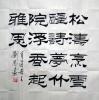 松濤烹雪
醒詩夢竹
院浮香起
雅風